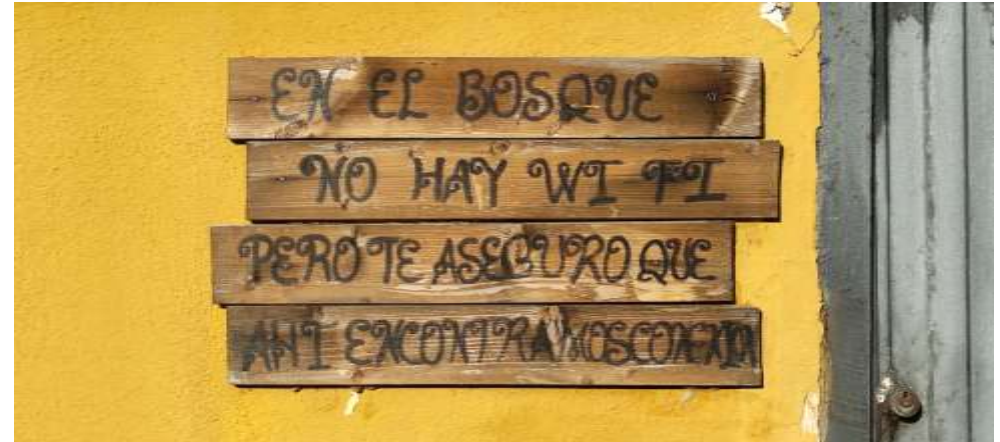 EN EL BOSQUE
NO HAY WI FI
PERO TE ASEGURO QUE
AHI ENCONTRAMOS